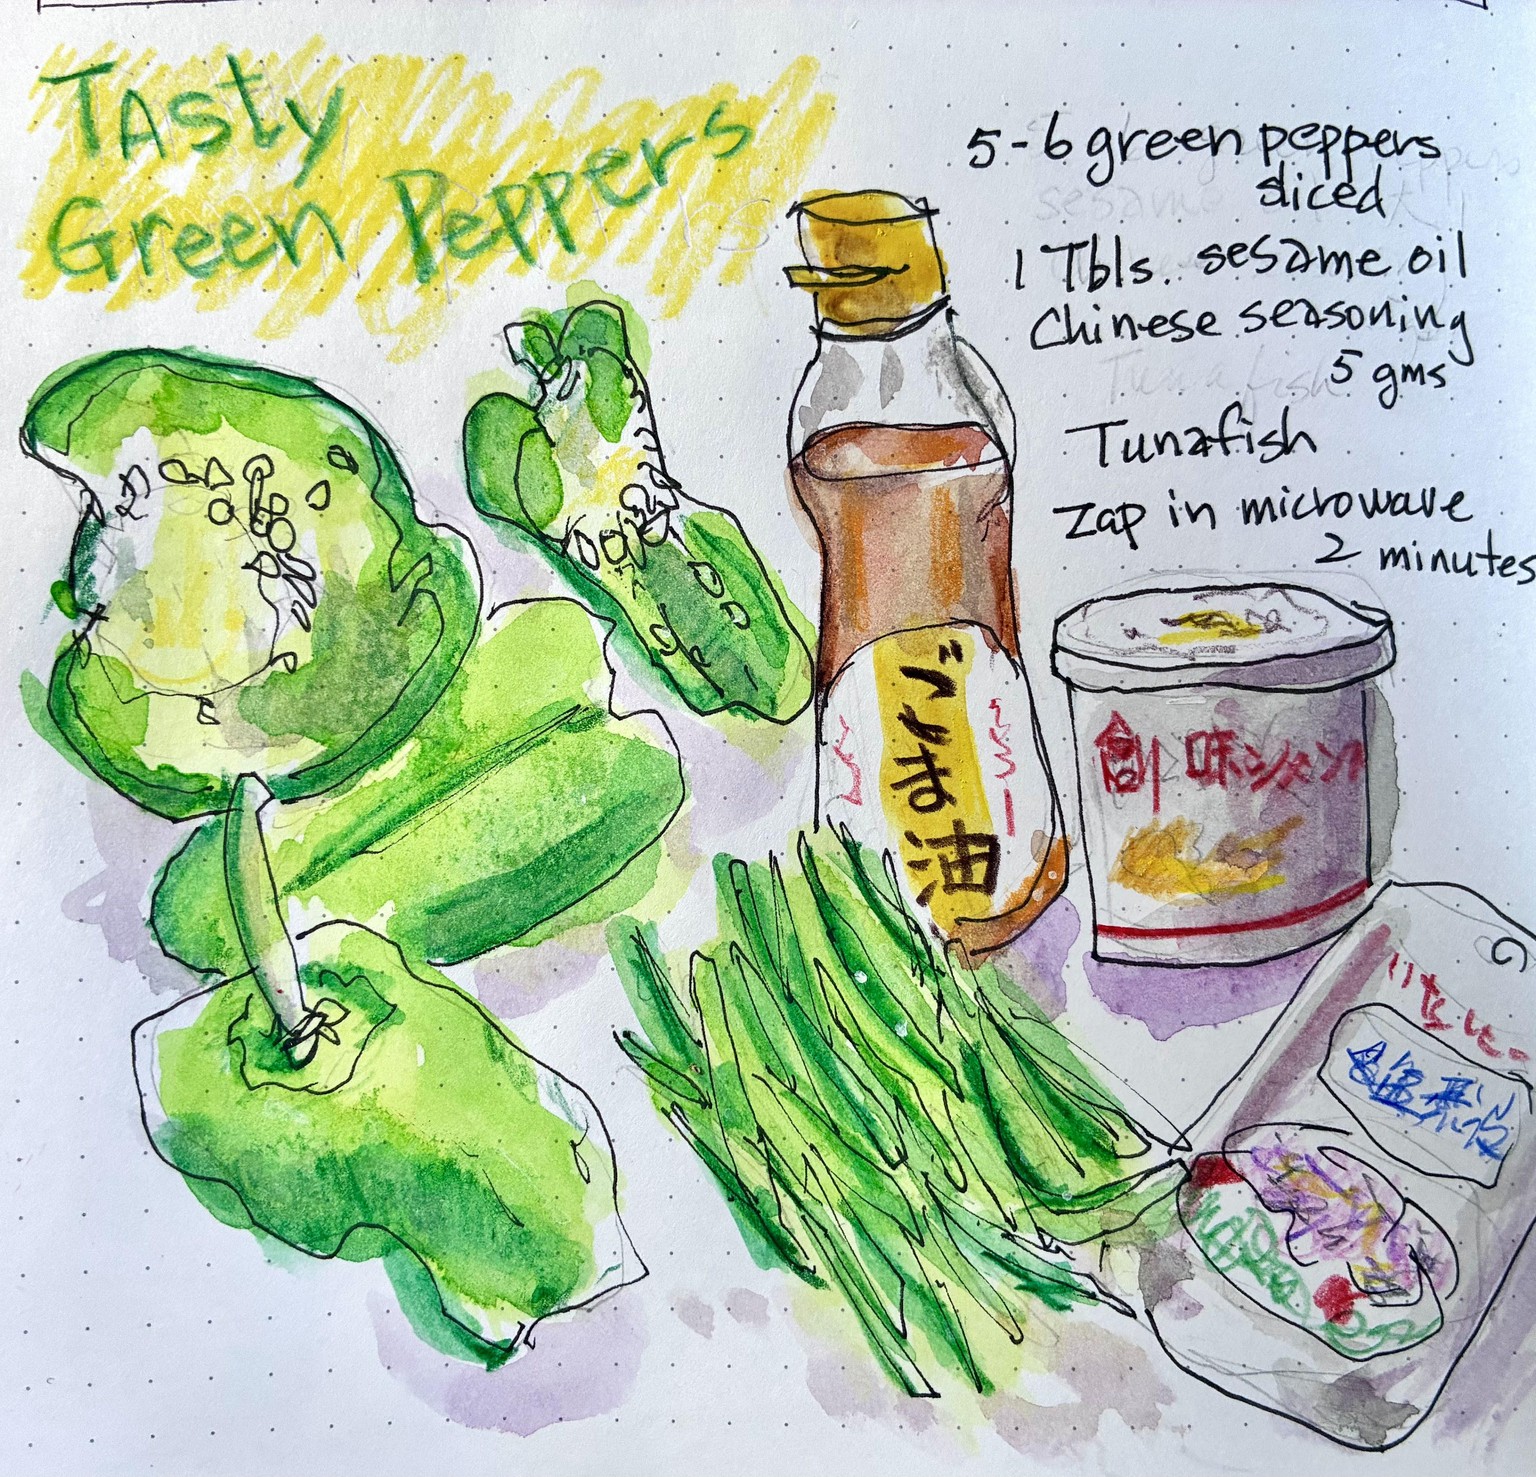 Tasty
Green Peppers
5-6 green peppers
sliced
1 Tbls. sesame oil
Chinese seasoning
5 gms
Tunafish
Zap in microwave
2 minutes
ごま油
創味シャンタン